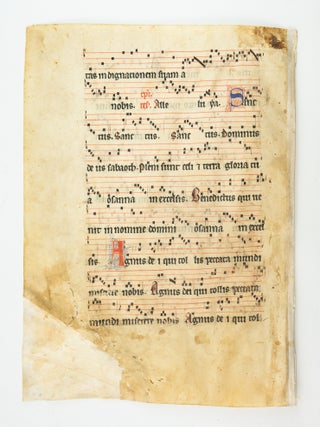 tas indignationem suam a
nobis. Alle lu ya. Sanc
tus. Sanc tus. Sanc tus. dominus
de us sabaoth. Pleni sunt celi et terra gloria tu
a osanna in excelsis. Benedictus qui ve
nit in nomine domini osanna in excel
sis Agnus de i qui tol lis peccata mundi
miserere nobis. Agnus dei qui tollis peccata
mundi miserere nobis Agnus de i qui tol